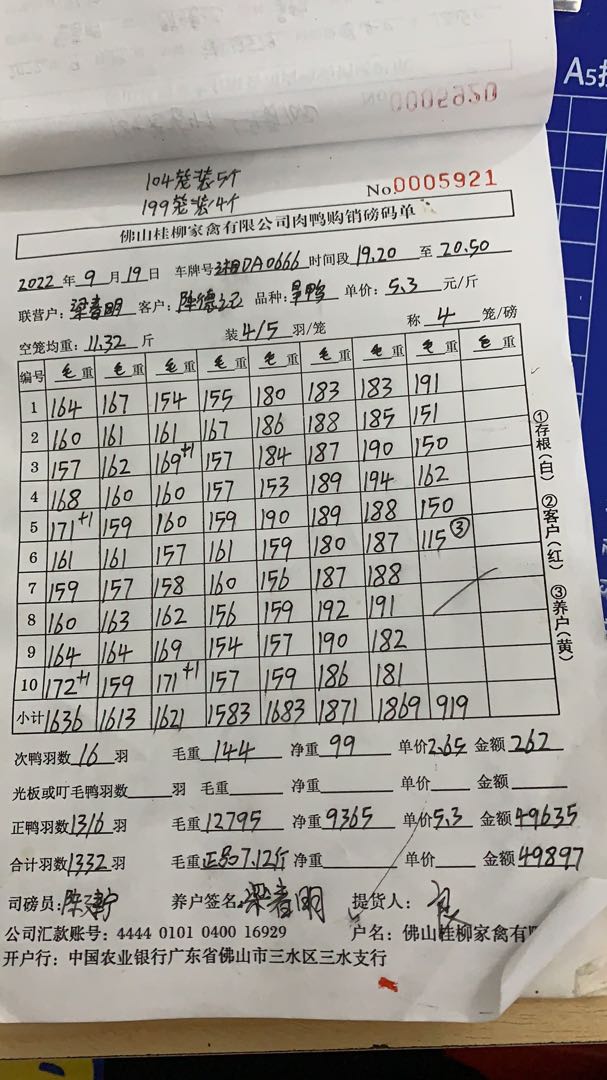 A5
No 0005920
104笼装5个
199笼装4个
No.0005921
佛山桂柳家禽有限公司肉鸭购销磅码单
2022年9月19日 车牌号湘DA0666 时间段19.20至20.50
联营户:梁春明 客户:陈德记 品种:旱鸭 单价:5.3元/斤
空笼均重:11.32斤 装4/5羽/笼 称4笼/磅
编号 毛重 毛重 毛重 毛重 毛重 毛重 毛重 毛重 毛重
1 164 167 154 155 180 183 183 191
2 160 161 161 167 186 188 185 151
3 157 162 169+1 157 184 187 190 150
4 168 160 160 157 153 189 194 162
5 171+1 159 160 159 190 189 188 150
6 161 161 157 161 159 180 187 115③
7 159 157 158 160 156 187 188
8 160 163 162 156 159 192 191
9 164 164 169 154 157 190 182
10 172+1 159 171+1 157 159 186 181
小计 1636 1613 1621 1583 1683 1871 1869 919
①存根(白) ②客户(红) ③养户(黄)
次鸭羽数16羽 毛重144 净重99 单价2.65 金额262
光板或叮毛鸭羽数 羽 毛重 净重 单价 金额
正鸭羽数1316羽 毛重12795 净重9365 单价5.3 金额49635
合计羽数1332羽 毛重正品7.12斤 净重 单价 金额49897
司磅员: 养户签名:梁春明 提货人:
公司汇款账号:4444 0101 0400 16929 户名:佛山桂柳家禽有
开户行:中国农业银行广东省佛山市三水区三水支行